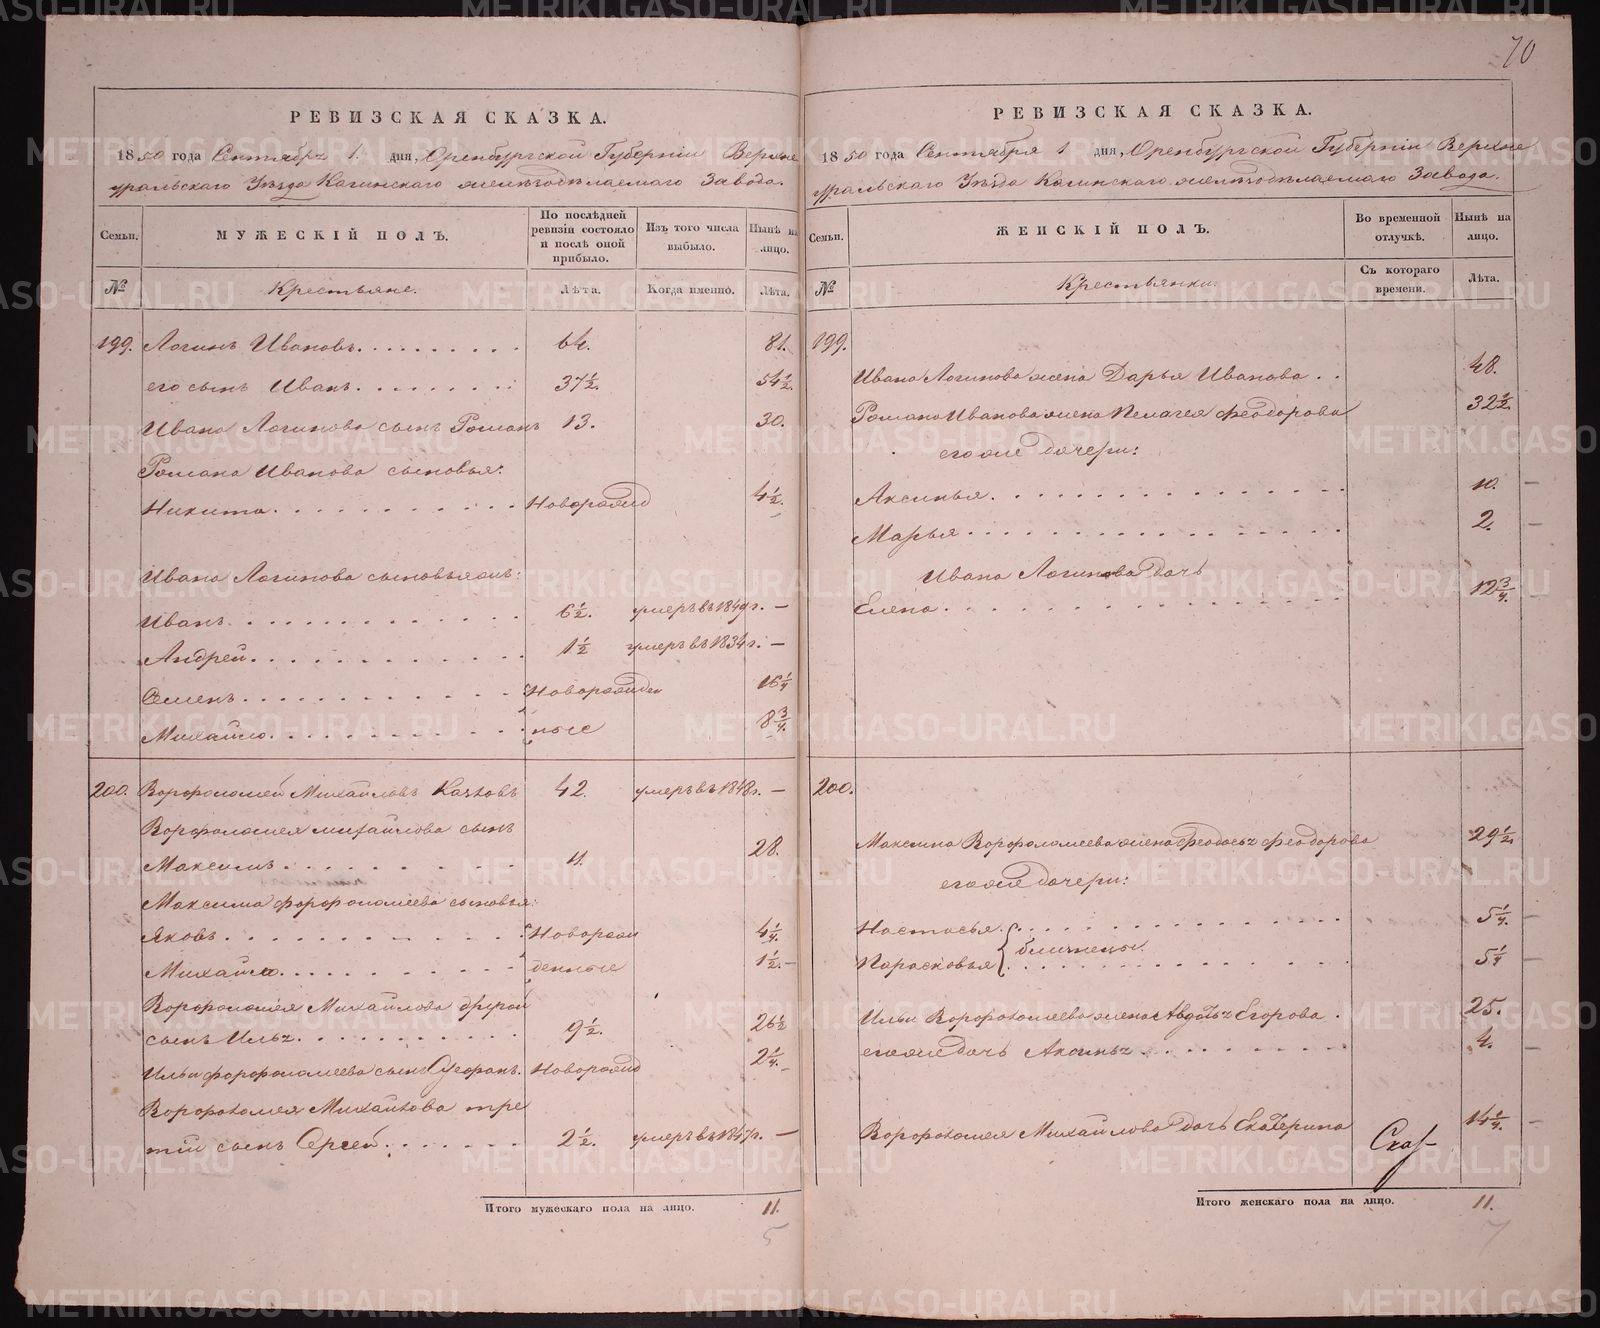 70
РЕВИЗСКАЯ СКАЗКА.
1850 года Сентября 1. дня, Оренбургской Губерніи Верхне
уральскаго Уѣзда Кагинскаго желѣзодѣлаемаго Завода.
Семьи.
МУЖЕСКІЙ ПОЛЪ.
По послѣдней ревизіи состояло и послѣ оной прибыло.
Изъ того числа выбыло.
Нынѣ на лицо.
№
Крестьяне.
Лѣта.
Когда именно.
Лѣта.
199. Логинъ Ивановъ 64. 81.
его сынъ Иванъ 37½. 54½.
Ивана Логинова сынъ Романъ 13. 30.
Романа Иванова сыновья:
Никита Новорожд 4½.
Ивана Логинова сыновья
Иванъ 6½. умеръ въ 1849 г. —
Андрей 1½ умеръ въ 1834 г. —
Семенъ Новорожден 16¼
Михайло ные 8¾.
200. Ворфоломей Михайловъ 42. умеръ въ 1848 г. —
Ворфоломея Михайлова сынъ
Максимъ 11. 28.
Максима Форфоломеева сыновья:
Яковъ Новорож 4¼.
Михайло денные 1½.
Ворфоломея Михайлова другой
сынъ Илья 9½. 26½
Ильи Форфоломеева сынъ Новорожд 2¼.
Ворфоломея Михайлова тре
тій сынъ Ергей 2½. умеръ въ 1847 г. —
Итого мужескаго пола на лицо. 11.
5
РЕВИЗСКАЯ СКАЗКА.
1850 года Сентября 1 дня, Оренбургской Губерніи Верхне
уральскаго Уѣзда Кагинскаго желѣзодѣлаемаго Завода.
Семьи.
ЖЕНСКІЙ ПОЛЪ.
Во временной отлучкѣ.
Нынѣ на лицо.
№
Крестьянки.
Съ котораго времени.
Лѣта.
199.
Ивана Логинова жена Дарья Иванова 48.
Романа Иванова жена Пелагея Феодорова 32½
его же дочери:
Аксинья 10.
Марья 2.
Ивана Логинова дочь
Елена 12¾.
200.
Максима Ворфоломеева жена Феодосья Феодорова 29½
его же дочери:
Настасья 5¼.
близнецы
Парасковья 5¼
Ильи Ворфоломеева жена Авдотья Егорова 25.
его же дочь Аксинья 4.
Ворфоломея Михайлова дочь Екатерина 14¼.
Итого женскаго пола на лицо. 11.
7
METRIKI.GASO-URAL.RU